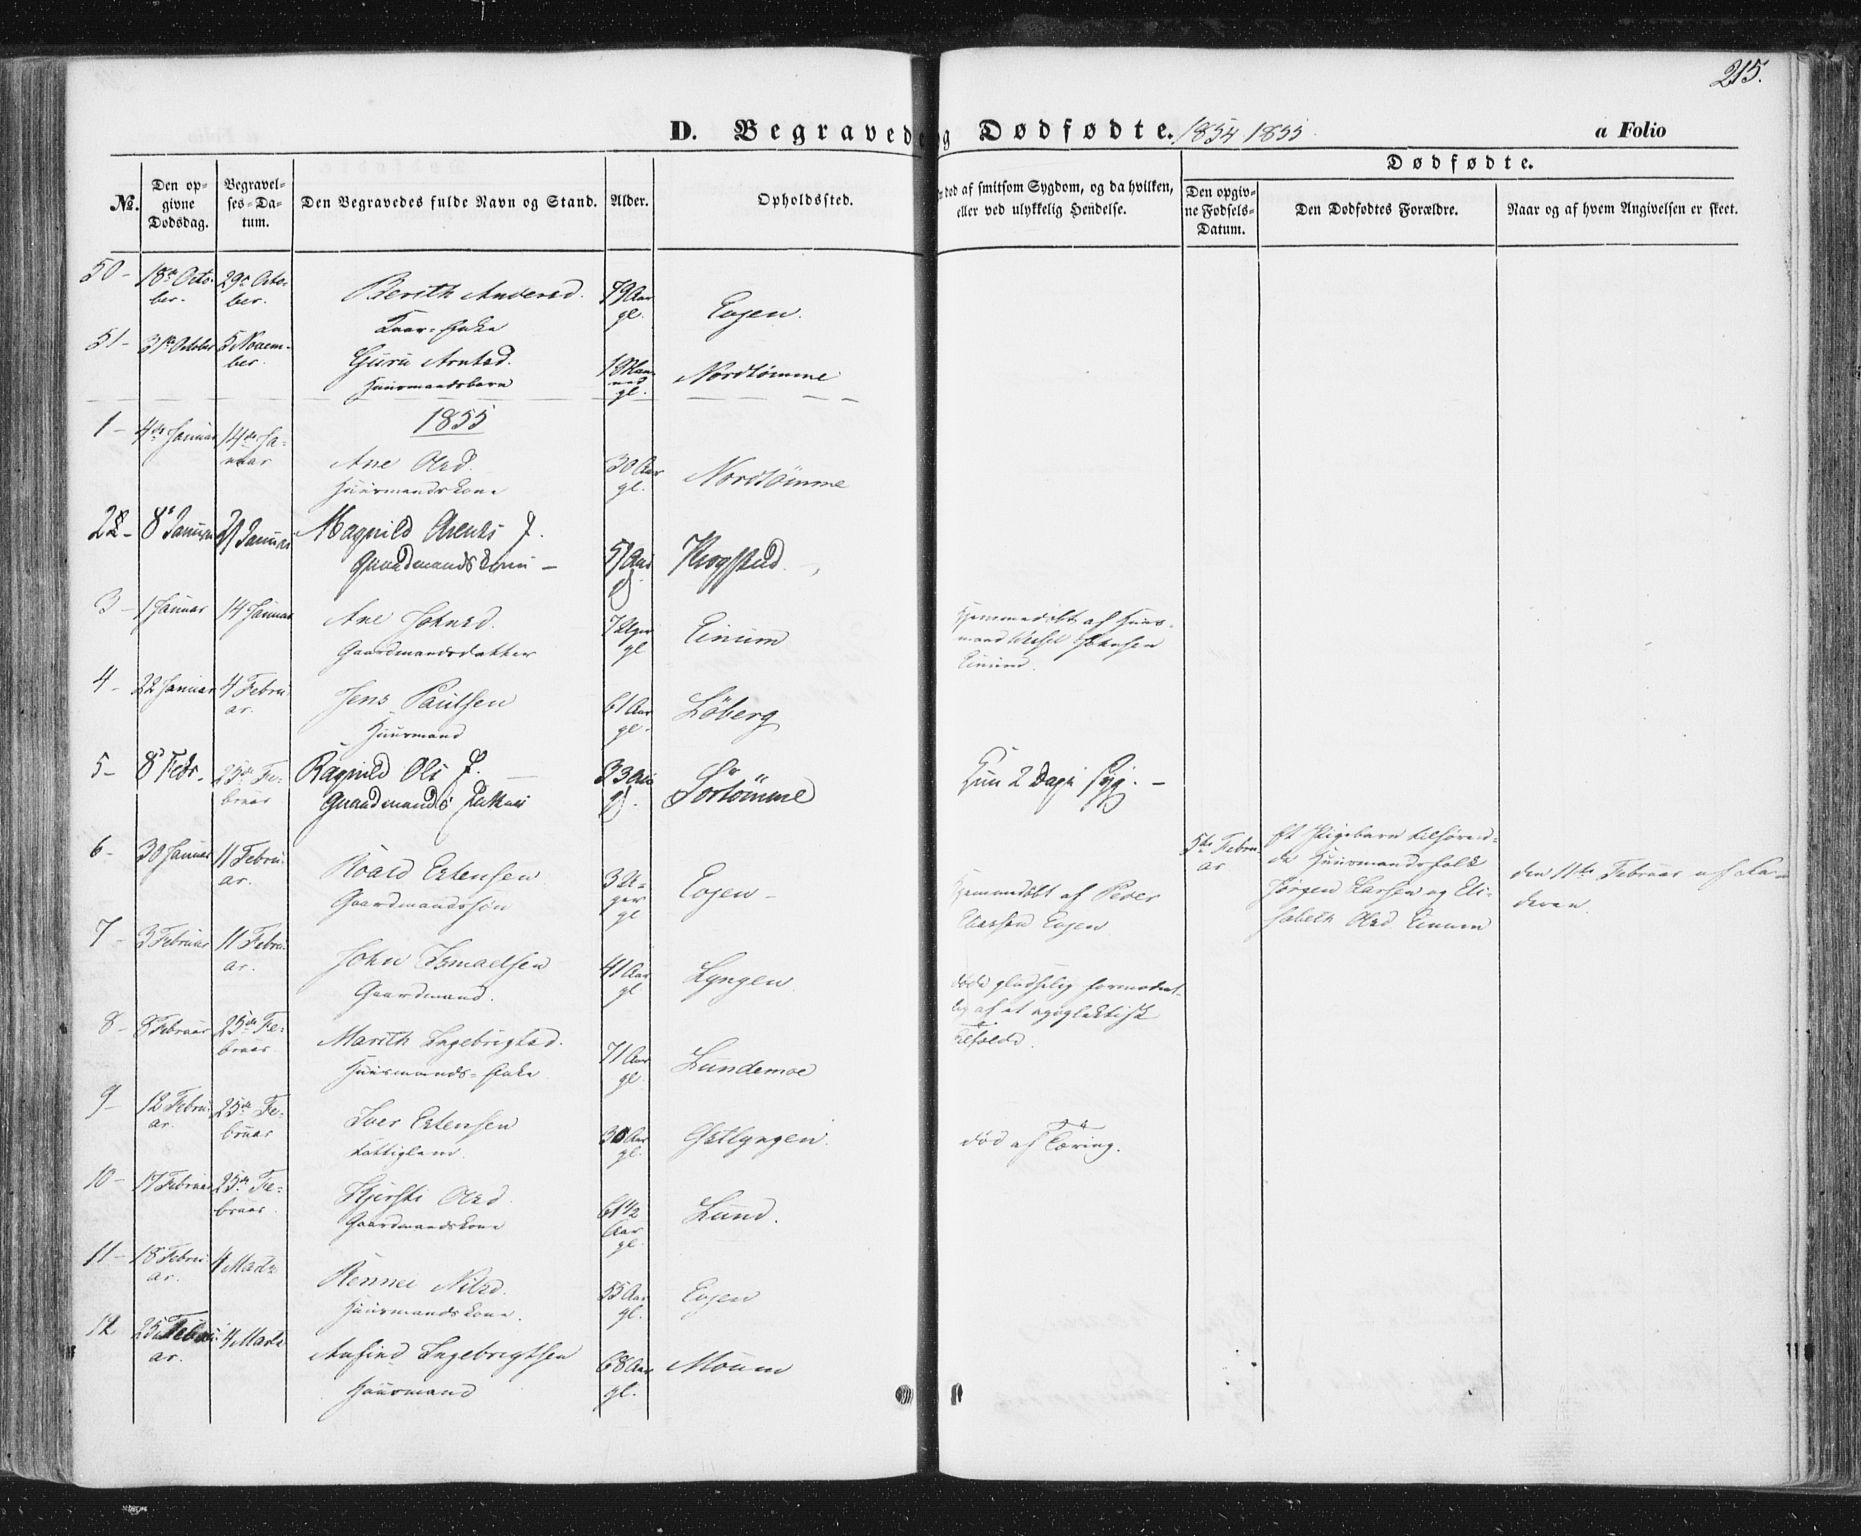 215.
D. Begravede og Dødfødte. 1854 1855. a Folio
No.
Den opgivne Dødsdag.
Begravelses-Datum.
Den Begravedes fulde Navn og Stand.
Alder.
Opholdssted.
død af smitsom Sygdom, og da hvilken,
eller ved ulykkelig Hendelse.
Dødfødte.
Den opgivne Fødsels-Datum.
Den Dødfødtes Forældre.
Naar og af hvem Angivelsen er skeet.
50 - 18de October. 29de October. Berith Andersd. 79 Aar gl. Eggen.
51 - 31te October 5 November. Guru Arntsd. Huusmandsbarn gl. Nordtømme
1855
1 - 4de Januar 14de Januar Ane Olsd. Huusmandskone 30 Aar gl. Nordtömme
2 - 8de Januar 21 Januar Magnild Arents D. Gaardmandskone - 51 Aar gl. Krogstad
3 - 1 Januar 14 Januar Ane Johnsd. Gaardmandsdatter 7 Uger gl Einum Hjemmedøbt af Huusmand Johnsen Einum.
4 - 22 Januar 4 Februar. Jens Paulsen Huusmand 61 Aar gl. Löberg
5 - 8de Febr. 25de Februar Ragnild Ols D. Gaardmands 33 Aar gl. Sørtömme Kun 2 Dage syg. -
6 - 30 Januar 11 Februar. Roald Estensen Gaardmandssøn 3 Uger gl Eggen - Hjemmedøbt af Peder Larsen Eggen
5te Februar Et Pigebarn tilhørende Huusmandsfolk Jørgen Larsen og Elisabeth Olsd Einum den 11te Februar af Faderen.
7 - 3 Februar 11 Februar. John Ismaelsen Gaardmand. 41 Aar gl Lyngen. døde pludselig formodentlig af et apoplektisk Tilfælde.
8 - 8 Februar 25de Februar Marith Ingebrigtsd. Huusmands- 71 Aar gl. Lundemoe
9 - 12 Februar. 25de Februar Iver Estensen Fattiglem. 30 Aar gl. Østlyngen. død af Tæring.
10 - 17 Februar 25de Februar. Kjersti Olsd. Gaardmandskone 61 1/2 Aar gl. Lund.
11 - 18 Februar. 4 Marts Rennei Nilsd. Huusmandskone. 55 Aar gl. Eggen
12 25 Februar. 4 Marts Anfind Ingebrigtsen Huusmand 68 Aar gl. Moum